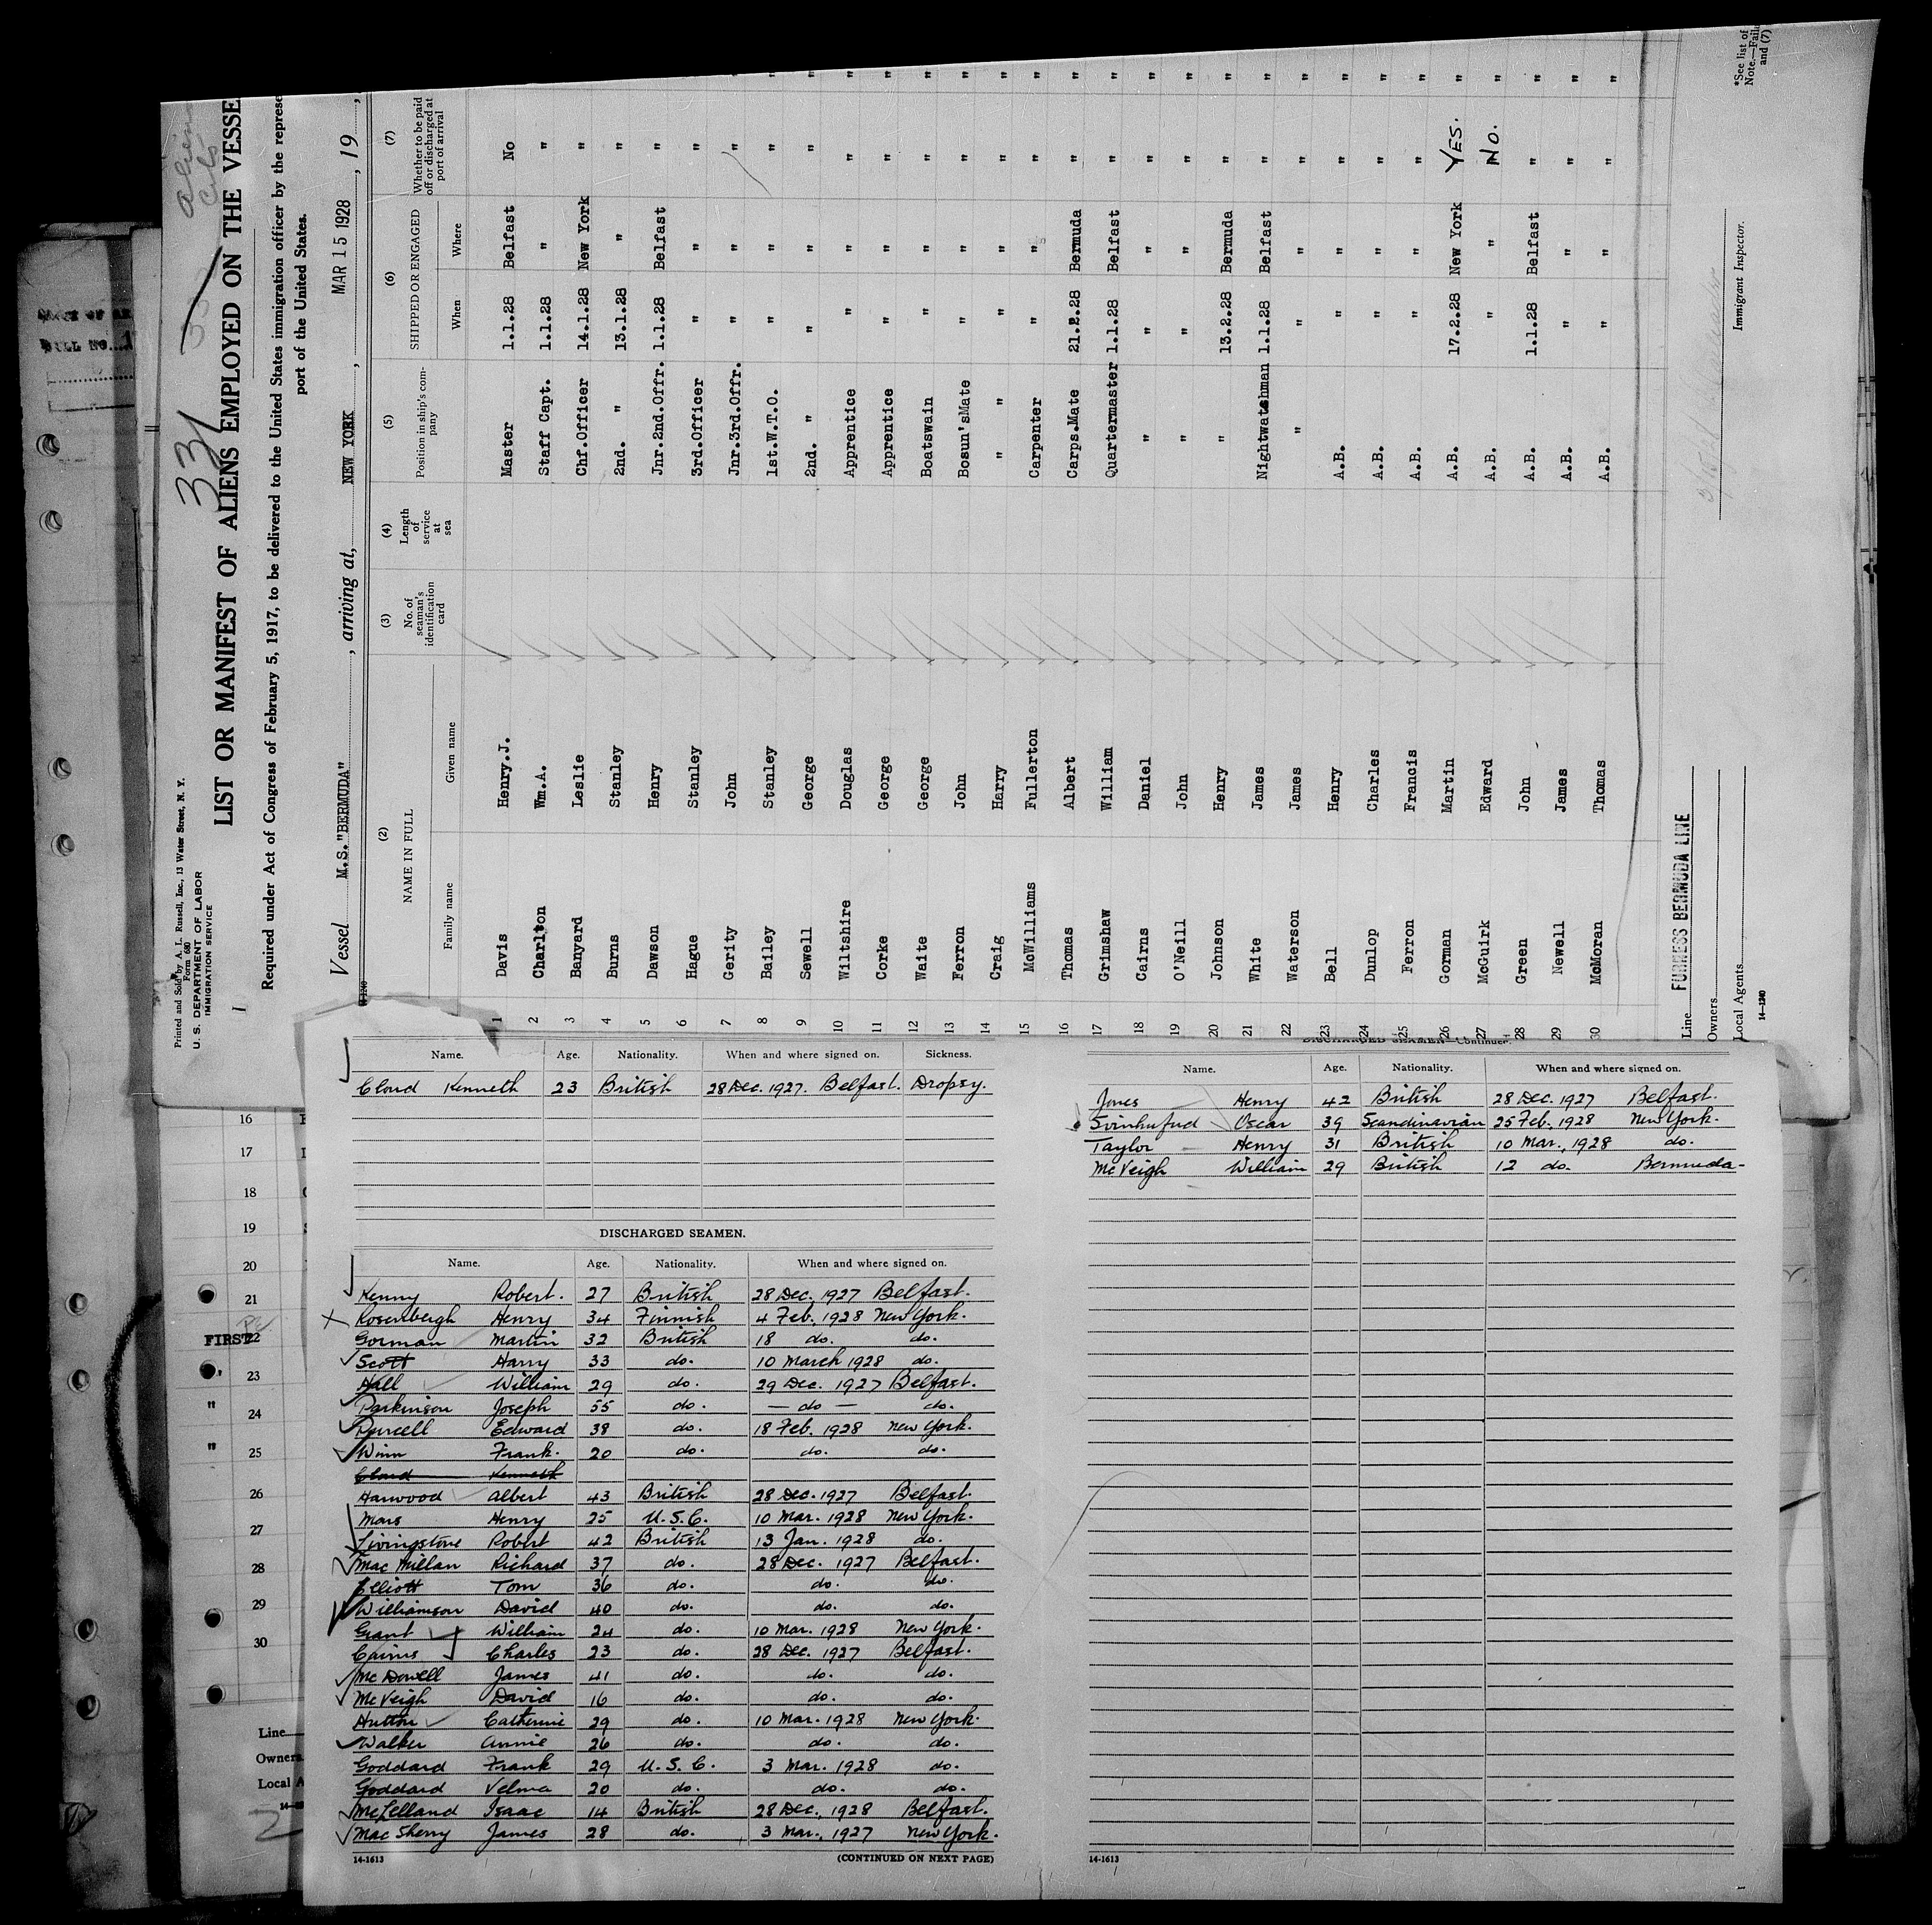 Printed and Sold by A. L. Russell, Inc., 13 Water Street, N. Y.
Form 680
U. S. DEPARTMENT OF LABOR
IMMIGRATION SERVICE
331
LIST OR MANIFEST OF ALIENS EMPLOYED ON THE VESSE
Required under Act of Congress of February 5, 1917, to be delivered to the United States immigration officer by the represe
port of the United States.
Vessel M.S."BERMUDA" , arriving at, NEW YORK , MAR 15 1928 , 19
(2) (3) (4) (5) (6) (7)
NAME IN FULL No. of seaman's identification card Length of service at sea Position in ship's company SHIPPED OR ENGAGED Whether to be paid off or discharged at port of arrival
Family name Given name When Where
1 Davis Henry.J. Master 1.1.28 Belfast No "
2 Charlton Wm.A. Staff Capt. 1.1.28 " " "
3 Banyard Leslie Chf.Officer 14.1.28 New York " "
4 Burns Stanley 2nd. " 13.1.28 " " "
5 Dawson Henry Jnr.2nd.Offr. 1.1.28 Belfast " "
6 Hague Stanley 3rd.Officer " " " "
7 Gerity John Jnr.3rd.Offr. " " " "
8 Bailey Stanley 1st.W.T.O. " " " "
9 Sewell George 2nd. " " " " "
10 Wiltshire Douglas Apprentice " " " "
11 Corke George Apprentice " " " "
12 Waite George Boatswain " " " "
13 Ferron John Bosun'sMate " " " "
14 Craig Harry " " " " " "
15 McWilliams Fullerton Carpenter " " " "
16 Thomas Albert Carps.Mate 21.2.28 Bermuda " "
17 Grimshaw William Quartermaster 1.1.28 Belfast " "
18 Cairns Daniel " " " " "
19 O'Neill John " " " " "
20 Johnson Henry " 13.2.28 Bermuda " "
21 White James Nightwatchman 1.1.28 Belfast " "
22 Waterson James " " " " "
23 Bell Henry A.B. " " " "
24 Dunlop Charles A.B. " " " "
25 Ferron Francis A.B. " " " "
26 Gorman Martin A.B. 17.2.28 New York YES. "
27 McGuirk Edward A.B. " " NO. "
28 Green John A.B. 1.1.28 Belfast " "
29 Newell James A.B. " " " "
30 McMoran Thomas A.B. " " " "
Line FURNESS BERMUDA LINE
Owners
Local Agents
14—1240
Immigrant Inspector.
*See list of
Note.—Fail
and (7)
Name. Age. Nationality. When and where signed on. Sickness.
Cloud Kenneth 23 British 28 Dec. 1927. Belfast. Dropsy.
DISCHARGED SEAMEN.
Name. Age. Nationality. When and where signed on.
Kenny Robert. 27 British 28 Dec. 1927 Belfast.
Rosenbergh Henry 34 Finnish 4 Feb. 1928 New York.
Gorman Martin 32 British 18 do. do.
Scott Harry 33 do. 10 March 1928 do.
Hall William 29 do. 29 Dec. 1927 Belfast.
Parkinson Joseph 55 do. — do — do.
Purcell Edward 38 do. 18 Feb. 1928 New York.
Winn Frank. 20 do. do. do.
Cloud Kenneth
Harwood Albert 43 British 28 Dec. 1927 Belfast.
Mars Henry 25 U.S.C. 10 Mar. 1928 New York.
Livingstone Robert 42 British 13 Jan. 1928 do.
Mac Millan Richard 37 do. 28 Dec. 1927 Belfast.
Elliott Tom 36 do. do. do.
Williamson David 40 do. do. do.
Grant William 24 do. 10 Mar. 1928 New York.
Cairns Charles 23 do. 28 Dec. 1927 Belfast.
Mc Dowell James 41 do. do. do.
Mc Veigh David 16 do. do. do.
Hutton Catherine 29 do. 10 Mar. 1928 New York.
Walker Annie 26 do. do. do.
Goddard Frank 29 U.S.C. 3 Mar. 1928 do.
Goddard Velma 20 do. do. do.
McLelland Isaac 14 British 28 Dec. 1928 Belfast.
Mac Sherry James 28 do. 3 Mar. 1927 New York.
14-1613 (CONTINUED ON NEXT PAGE)
DISCHARGED SEAMEN—Continued.
Name. Age. Nationality. When and where signed on.
Jones Henry 42 British 28 Dec. 1927 Belfast.
Svinhufud Oscar 39 Scandinavian 25 Feb. 1928 New York.
Taylor Henry 31 British 10 Mar. 1928 do.
Mc Veigh William 29 British 12 do. Bermuda-
14-1613
16
17
18
19
20
21
FIRST 22
" 23
" 24
" 25
26
27
28
29
30
Line
Owners
Local A
2